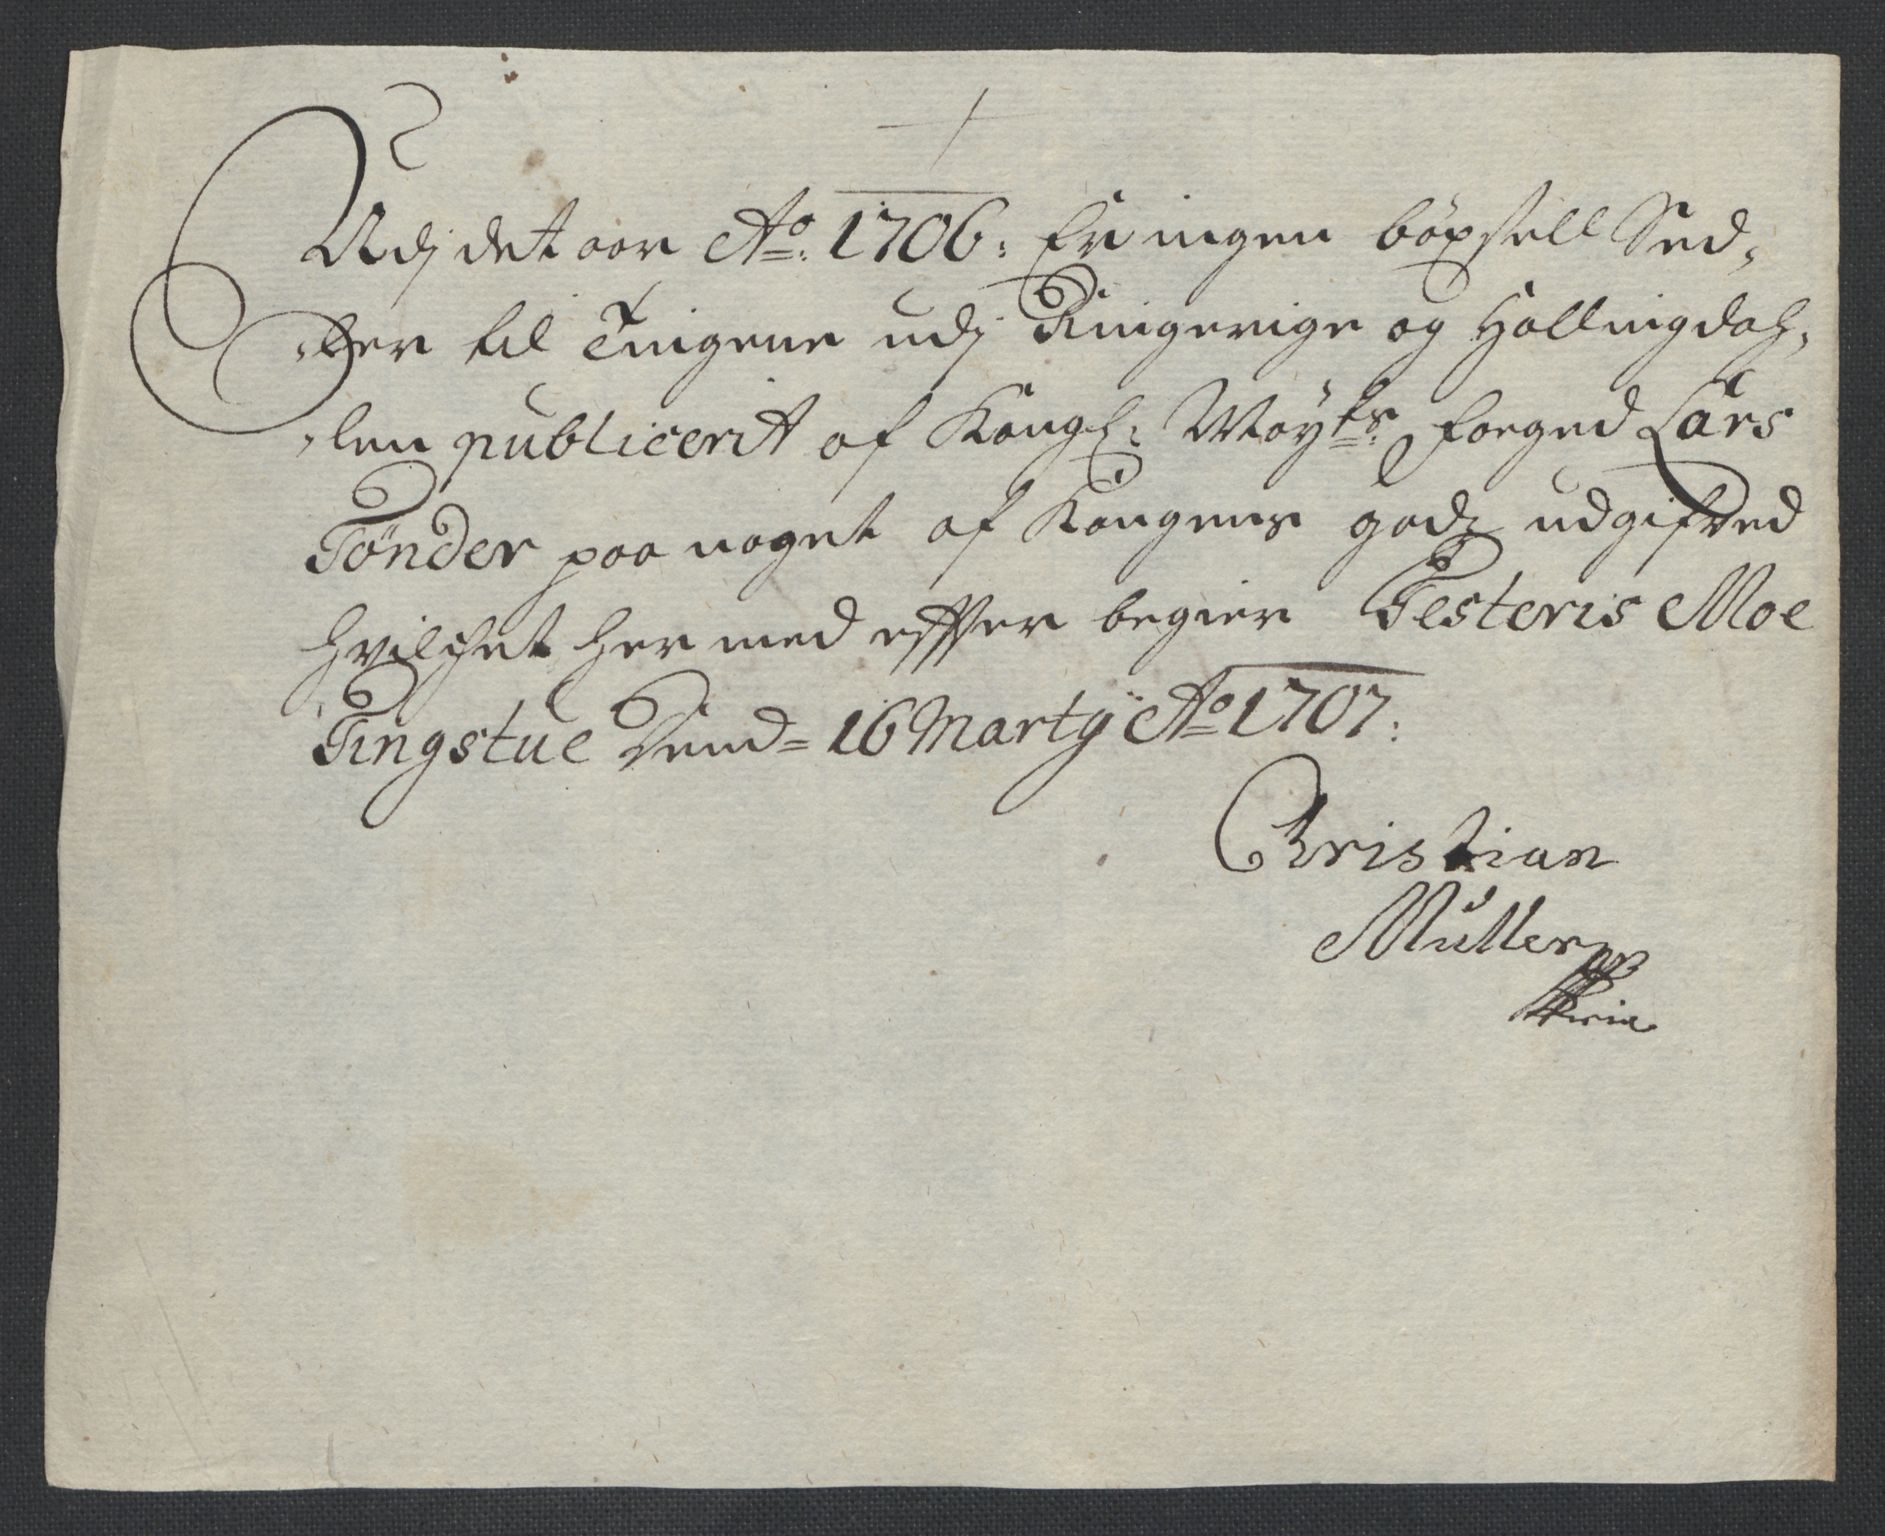 Udj det aar Ao: 1706: Er ingen böxsell Sed-
ler til Tingene udj Ringerige og Hallingdah-
len publicerit af Kongl: Maÿts: foeged Lars
Tønder paa noget af Kongens godz udgifved
hvilchet her med effter begier Testeris Moe
Tingstue Dend 16 Martÿ Ao 1707:
Christian
Müller